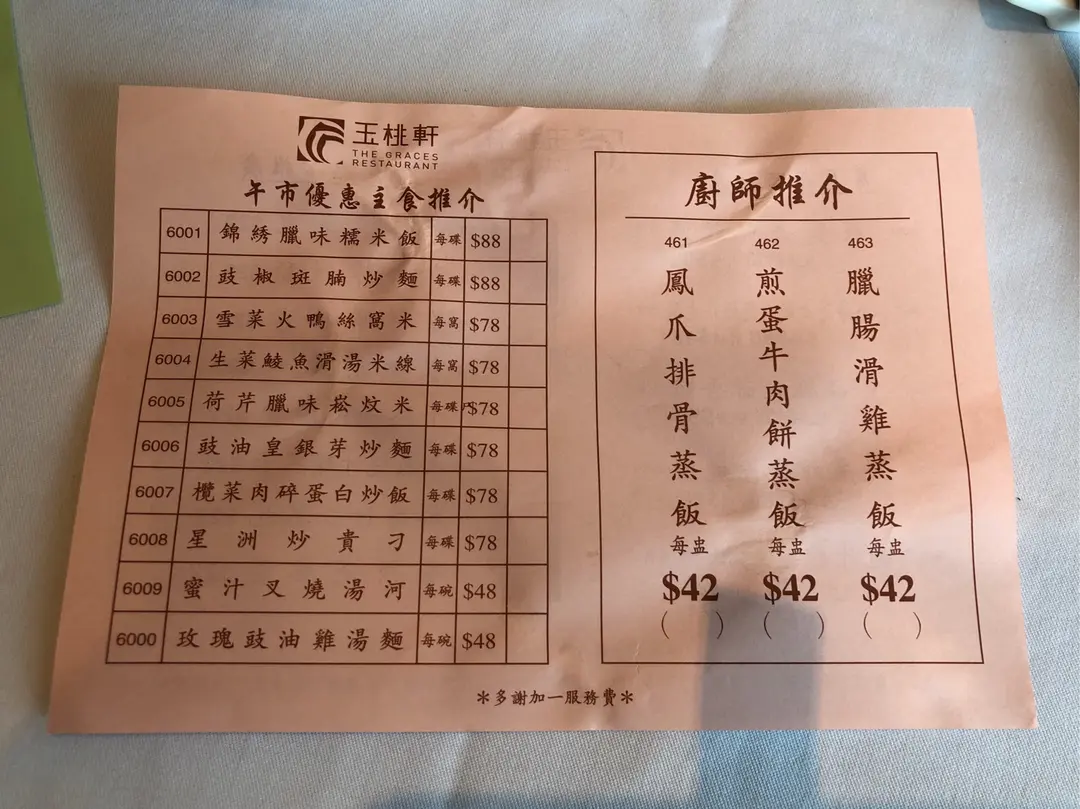 玉桃軒
THE GRACES
RESTAURANT
午市優惠主食推介
6001 錦綉臘味糯米飯 每碟 $88
6002 豉椒斑腩炒麵 每碟 $88
6003 雪菜火鴨絲窩米 每窩 $78
6004 生菜鯪魚滑湯米線 每窩 $78
6005 荷芹臘味崧炆米 每碟 $78
6006 豉油皇銀芽炒麵 每碟 $78
6007 欖菜肉碎蛋白炒飯 每碟 $78
6008 星洲炒貴刁 每碟 $78
6009 蜜汁叉燒湯河 每碗 $48
6000 玫瑰豉油雞湯麵 每碗 $48
廚師推介
461
鳳爪排骨蒸飯
每盅
$42
( )
462
煎蛋牛肉餅蒸飯
每盅
$42
( )
463
臘腸滑雞蒸飯
每盅
$42
( )
*多謝加一服務費*